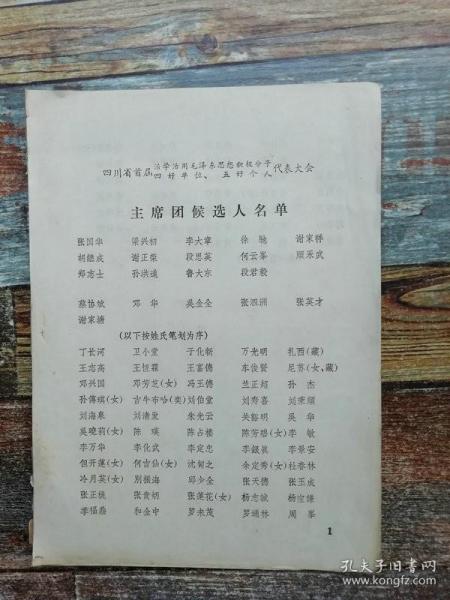 四川省首届活学活用毛泽东思想积极分子
四好单位、五好个人代表大会
主席团候选人名单
张国华 梁兴初 李大章 徐驰 谢家祥
胡继成 谢正荣 段思英 何云峯
郑志士 孙洪道 鲁大东 段君毅
蔡协斌 邓华 吴全全 张泗洲 张英才
谢家塘
(以下按姓氏笔划为序)
丁长河 卫小堂 于化新 万光明 扎西(藏)
王志高 王恒霖 王富德 车俊贤 尼苏(女、藏)
邓兴国 邓芳芝(女) 冯玉德 竺正绍 孙杰
孙傳琪(女) 吉牛布哈(夷) 刘伯堂 刘寿喜 刘荣顺
刘海泉 刘清发 朱光云 关裕明 吴华
吴晓莉(女) 陈瑛 陈占楼 陈芳碧(女) 李敏
李万华 李化武 李定忠 李景安
但开莲(女) 何吉仙(女) 沈甸之 余定秀(女) 杜春林
冷月英(女) 别振海 邱少全 张天德 张玉成
张正桃 张贵炳 张莲花(女) 杨志诚 杨宝臻
李福磊 和金中 罗未茂 罗通林 周峯
1
孔夫子旧书网
www.kongfz.com